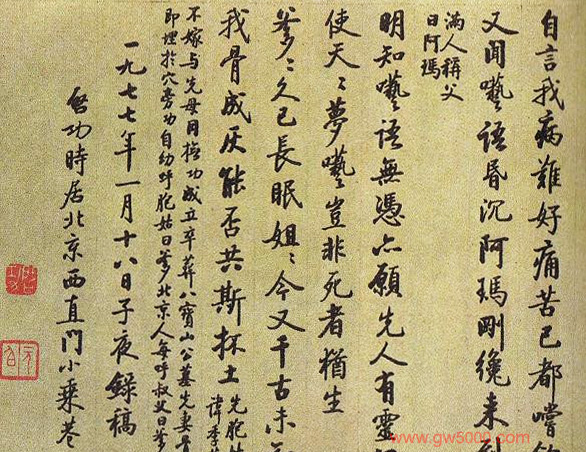 自言我病難好痛苦已都嚐
又聞囈語昏沉阿瑪剛纔来
滿人稱父
曰阿瑪
明知囈語無憑亦願先人有靈
使天〻夢囈豈非死者猶生
爹〻久已長眠姐〻今又千古未
我骨成灰能否共斯抔土
先胞
諱季
不嫁与先母同撫功成立卒葬八寶山公墓先妻骨
即埋於穴旁功自幼呼胞姑曰爹〻北京人每呼叔父曰爹
一九七七年一月十八日子夜錄稿
啓功時居北京西直門小乘巷
www.gw5000.com